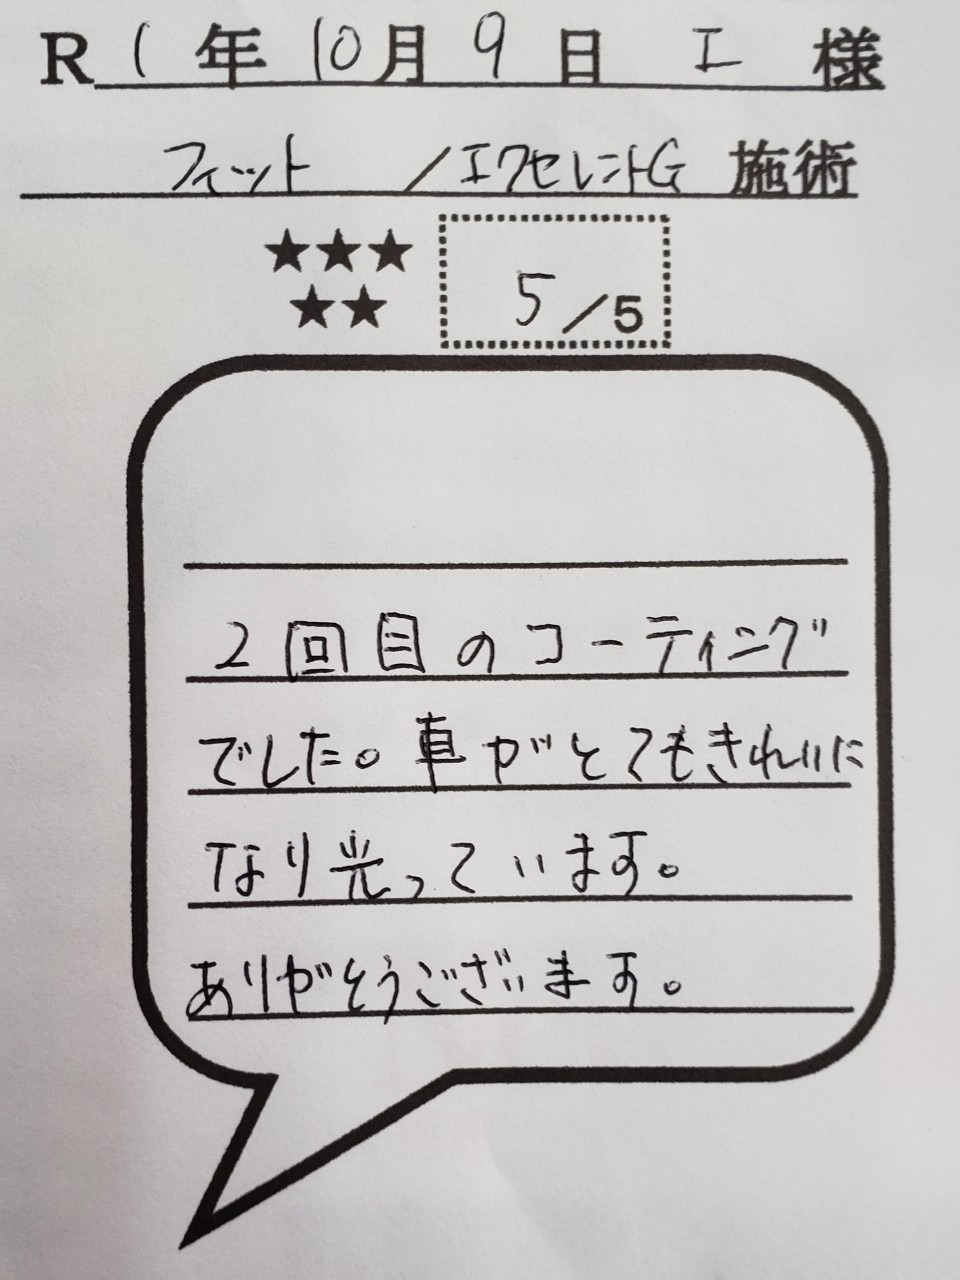 R1年10月9日 エ 様
フィット /エクセレントG 施術
★★★
★★
5/5
2回目のコーティング
でした。車がとてもきれいに
なり光っています。
ありがとうございます。